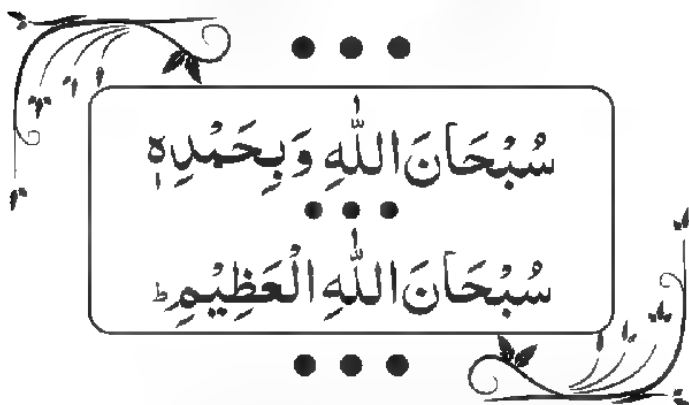 سُبْحَانَ اللّٰهِ وَبِحَمْدِهٖ
سُبْحَانَ اللّٰهِ الْعَظِيْمِ ؕ